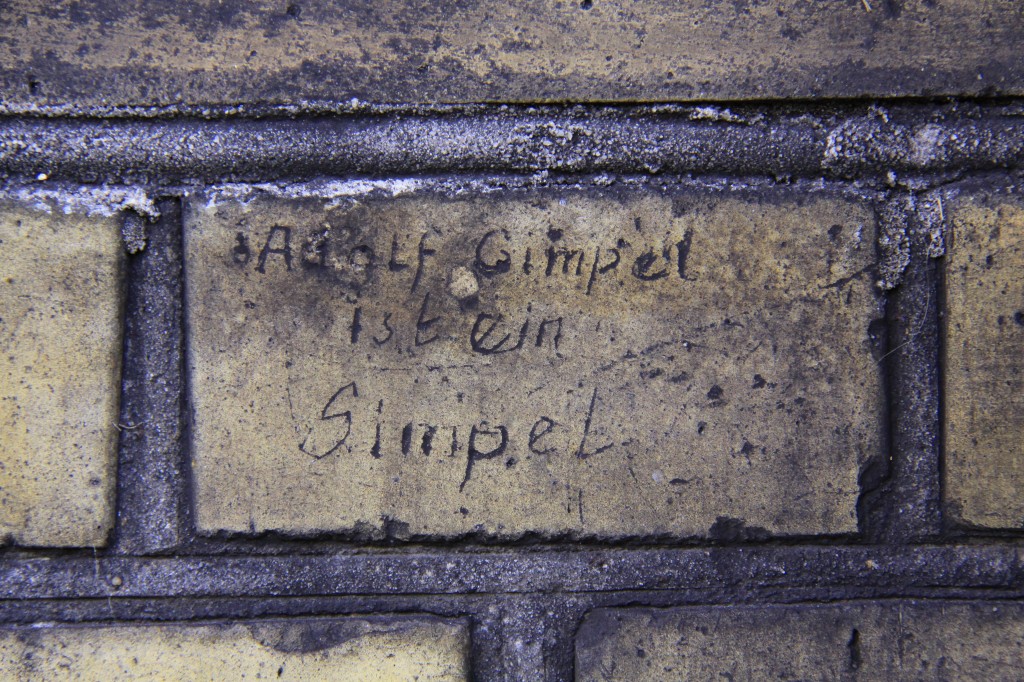 Adolf Gimpel
ist ein
Simpel